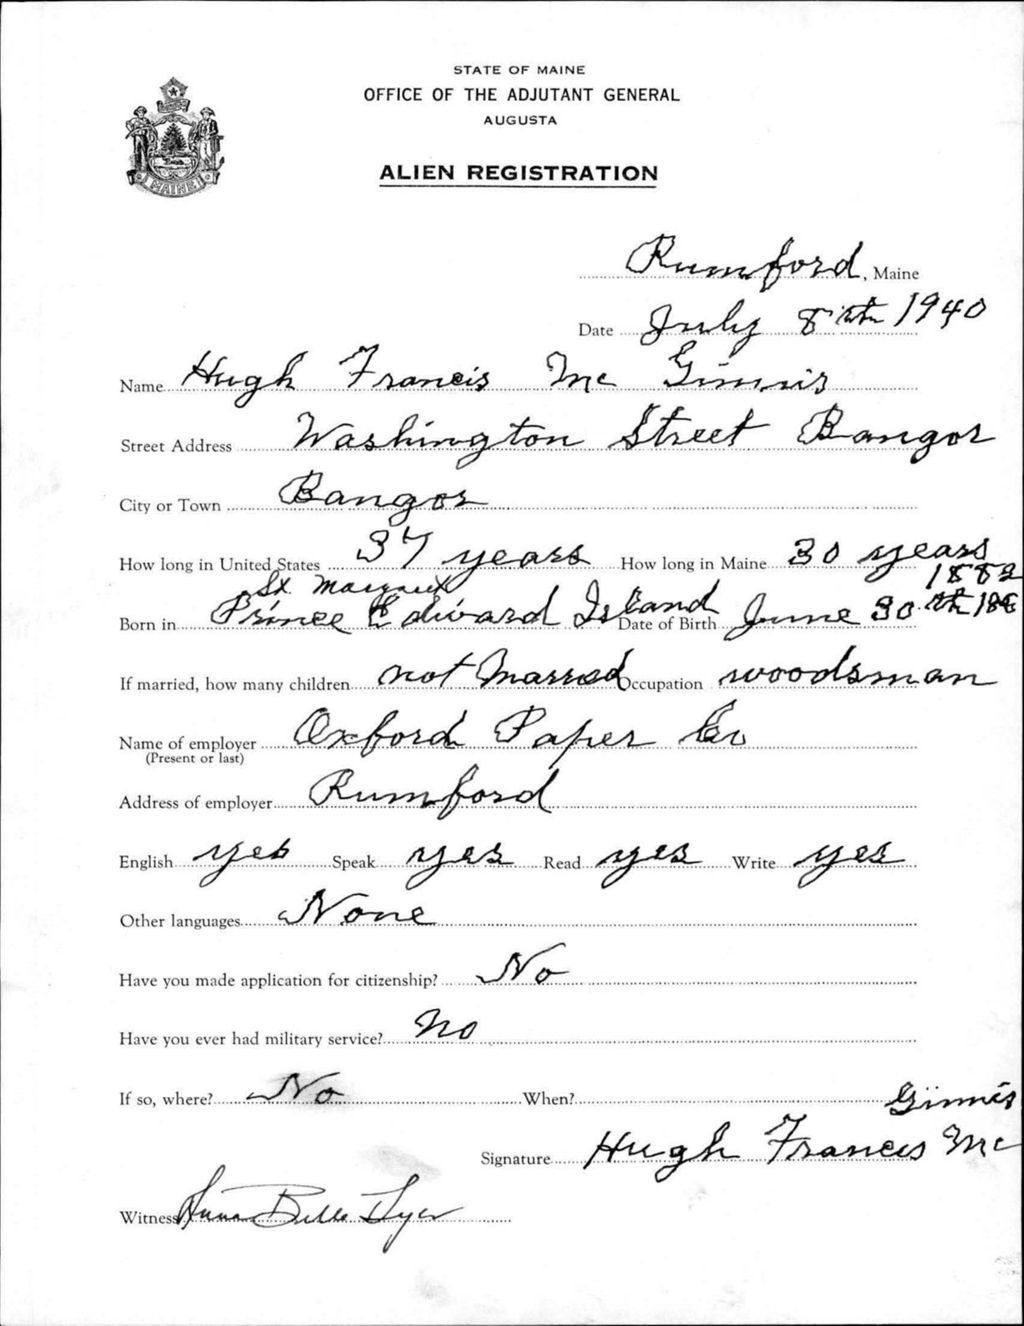 STATE OF MAINE
OFFICE OF THE ADJUTANT GENERAL
AUGUSTA
ALIEN REGISTRATION
MAINE
Rumford, Maine
Date July 8th 1940
Name Hugh Francis Mc Ginnis
Street Address Washington Street Bangor
City or Town Bangor
How long in United States 37 years How long in Maine 30 years
St. 1882
Born in Prince Edward Island Date of Birth June 30th
If married, how many children not Married Occupation woodsman
Name of employer Oxford Paper Co
(Present or last)
Address of employer Rumford
English yes Speak yes Read yes Write yes
Other languages None
Have you made application for citizenship? No
Have you ever had military service? no
If so, where? No When?
Ginnis
Signature Hugh Francis Mc
Witness Anna Belle Dyer